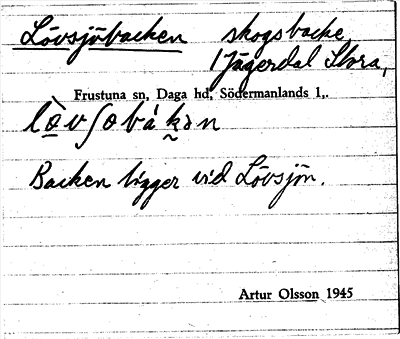 Lövsjöbacken skogsbacke,
1 Jägerdal Stora,
Frustuna sn, Daga hd, Södermanlands l.
lò̱vʃobákən
Backen ligger vid Lövsjön.
Artur Olsson 1945